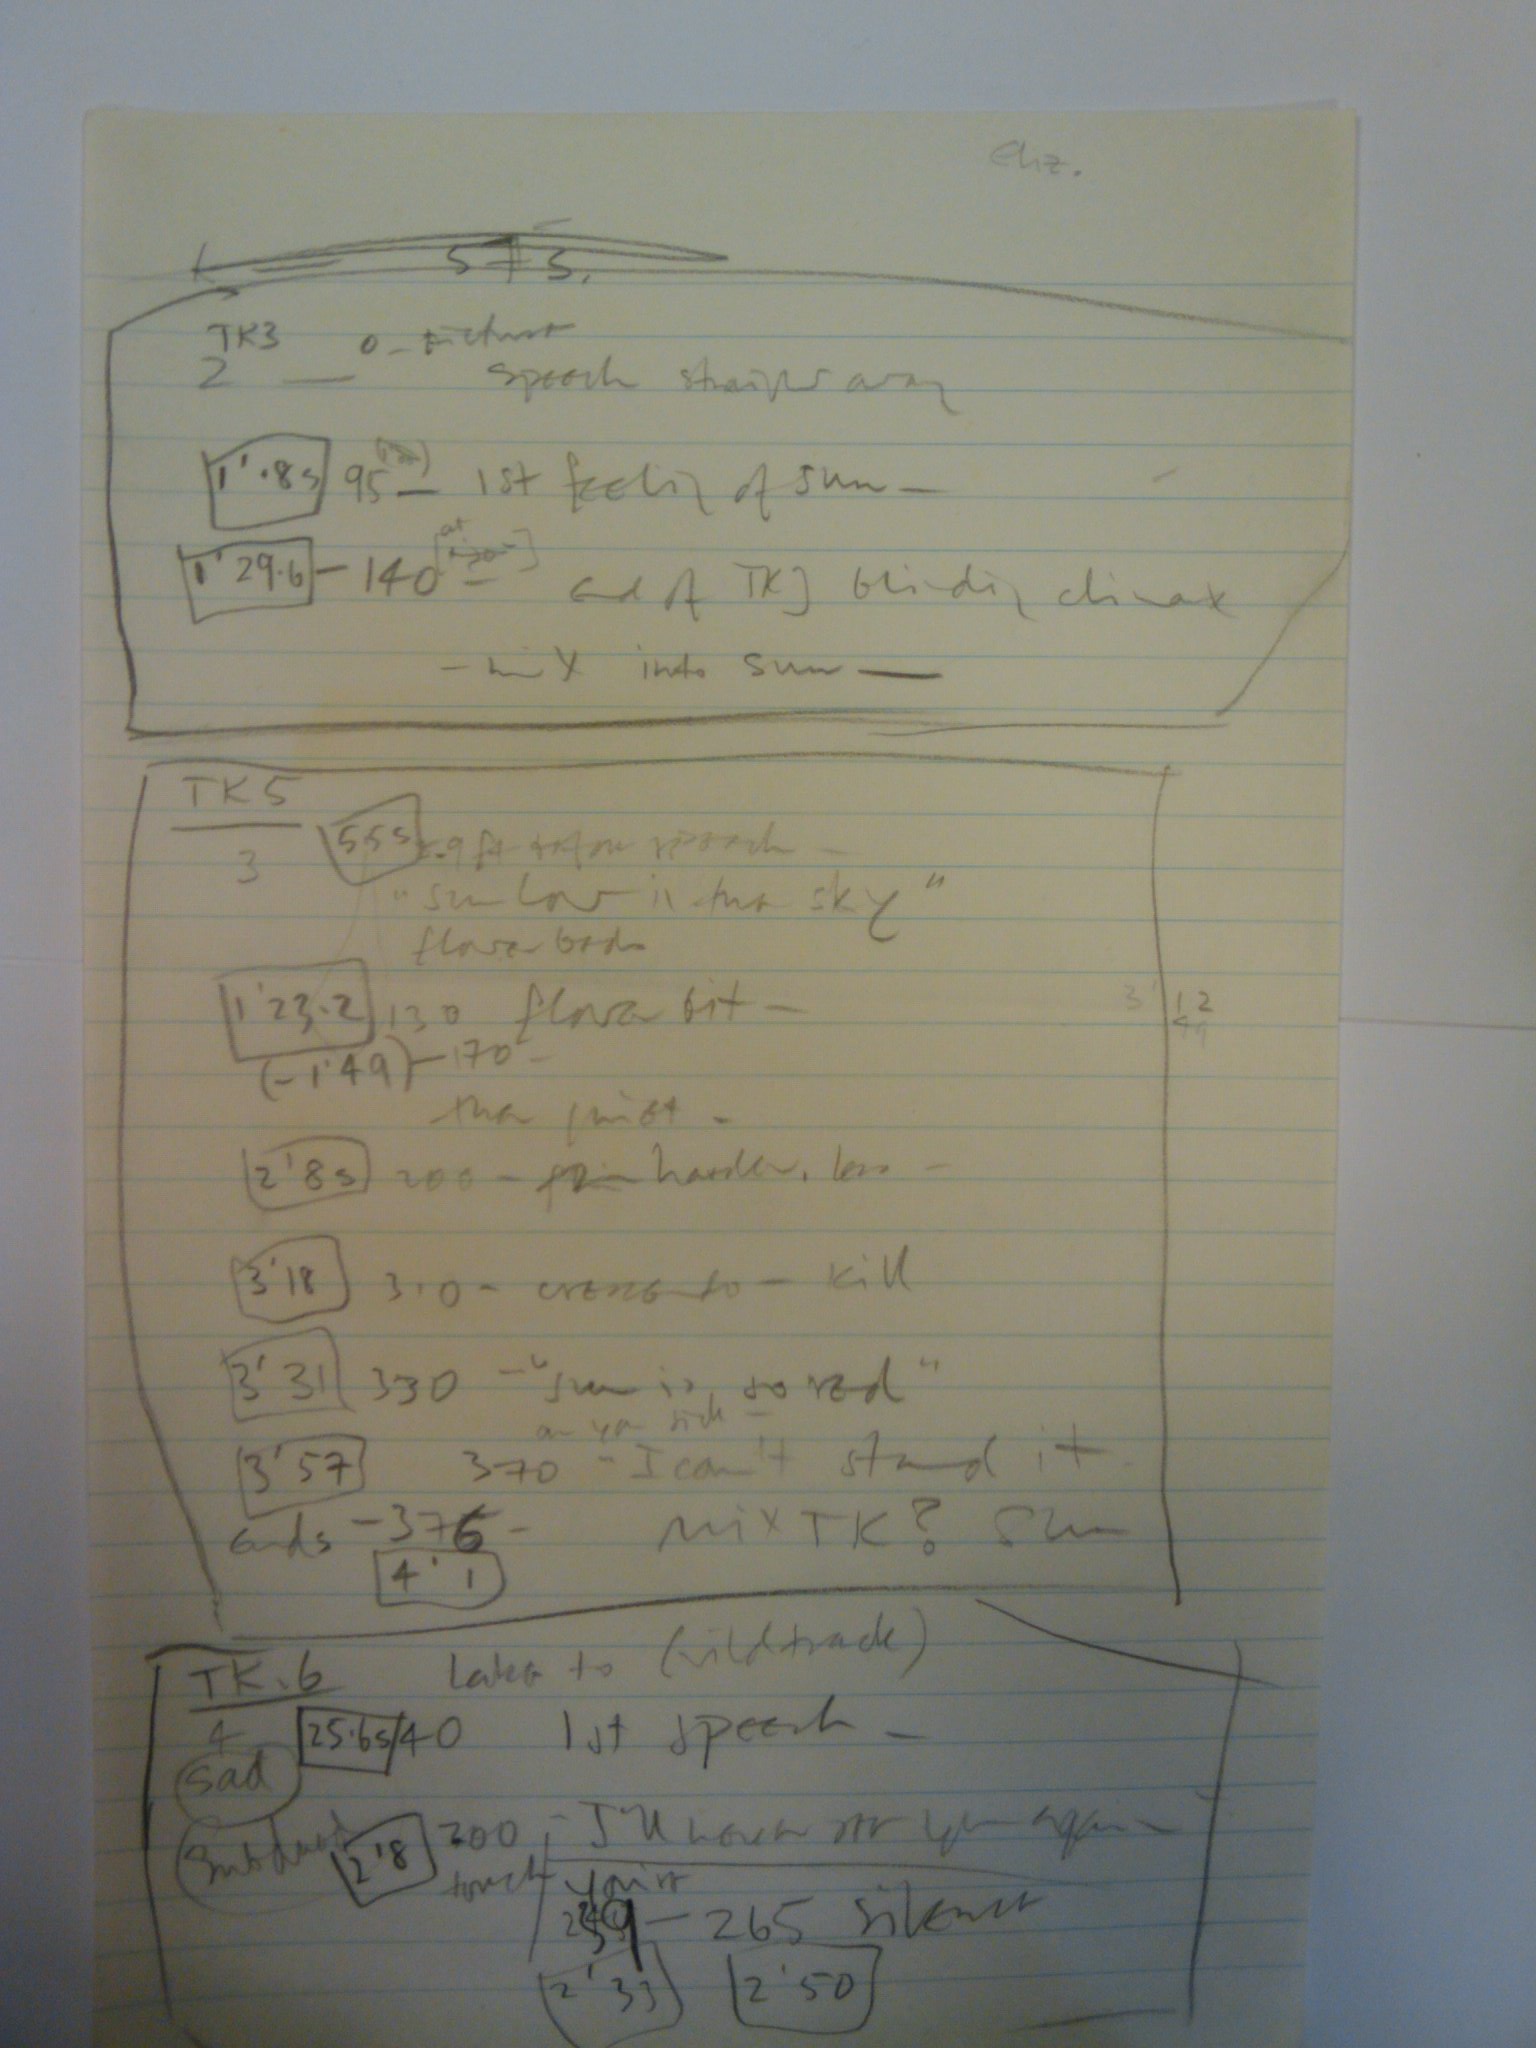 575.
TK3 0 -
2 — speech straight away
1'.8s 95 — 1st feeling of sun —
1'29.6 — 140 [at ] end of TK3 blinding climax
- mix into sun —
TK5
3 55s 9 ft before speech —
"sun low in the sky"
flower beds
1'23.2 130 flower bit — 3' 12
(-1'49) — 170 -
then quiet -
2'8s 200 - harder, less -
3'18 310 - crescendo - kill
3'31 330 - "sun is so red"
3'57 370 - I can't stand it
ends - 376 - mix TK? Sun
4'1
TK.6 Lakes to (wildtrack)
4 25.6s/40 1st speech —
sad
subdued 2'8 200 - I'll never see you again —
touch
— 265 silence
2'33 2'50